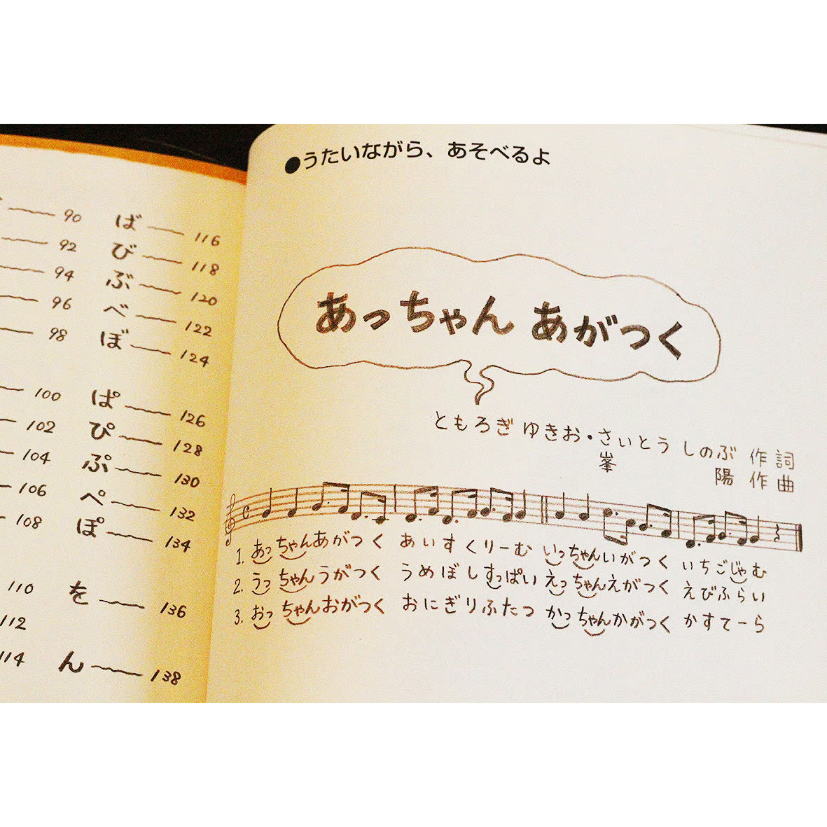 90 ば 116
92 び 118
94 ぶ 120
96 べ 122
98 ぼ 124
100 ぱ 126
102 ぴ 128
104 ぷ 130
106 ぺ 132
108 ぽ 134
110 を 136
112
114 ん 138
●うたいながら、あそべるよ
あっちゃん あがつく
ともろぎ ゆきお・さいとう しのぶ 作詞
峯 陽 作曲
1. あっちゃんあがつく あいすくりーむ いっちゃんいがつく いちごじゃむ
2. うっちゃんうがつく うめぼしすっぱい えっちゃんえがつく えびふらい
3. おっちゃんおがつく おにぎりふたつ かっちゃんかがつく かすてーら